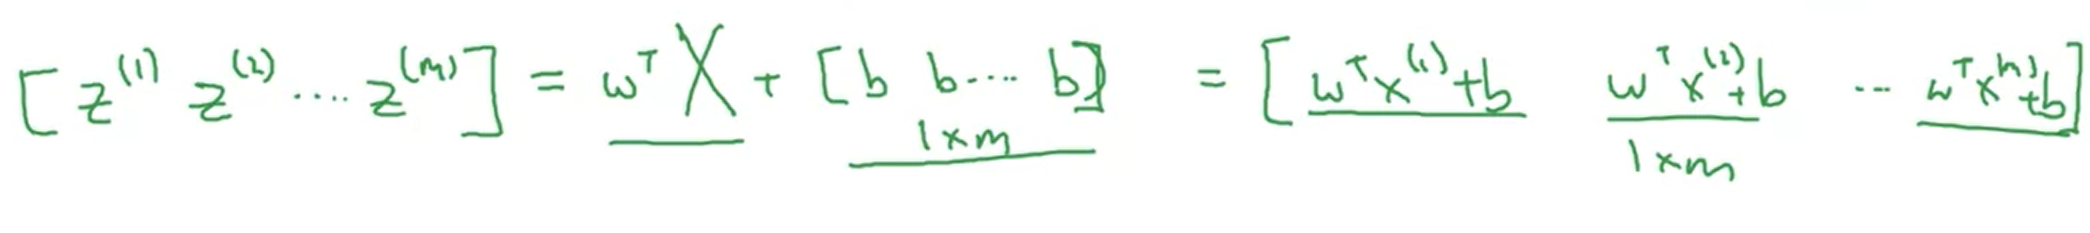 [z⁽¹⁾ z⁽²⁾ .... z⁽ᵐ⁾] = wᵀX + [b b.... b] = [wᵀx⁽¹⁾+b wᵀx⁽²⁾+b ... wᵀx⁽ᵐ⁾+b]
1×m 1×m